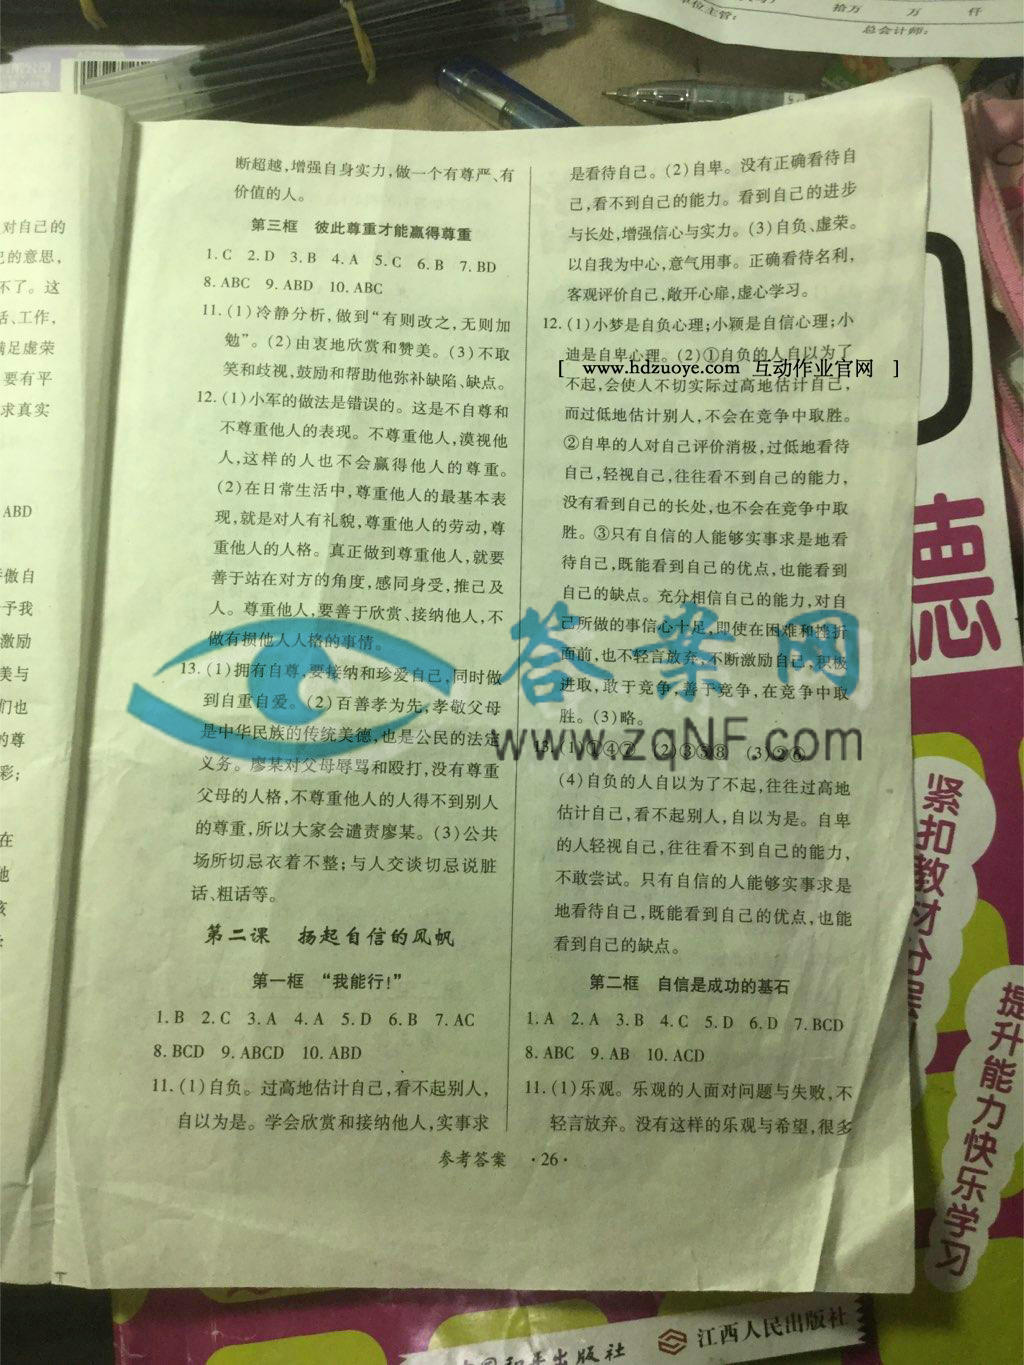 拾万 万 仟
位主管:
总会计师:
对自己的
己的意思,
不了。这
活、工作,
满足虚荣
要有平
求真实
ABD
骄傲自
予我
激励
美与
们也
的尊
彩;
在
断超越,增强自身实力,做一个有尊严、有
价值的人。
第三框 彼此尊重才能赢得尊重
1. C 2. D 3. B 4. A 5. C 6. B 7. BD
8. ABC 9. ABD 10. ABC
11. (1)冷静分析,做到“有则改之,无则加
勉”。(2)由衷地欣赏和赞美。(3)不取
笑和歧视,鼓励和帮助他弥补缺陷、缺点。
12. (1)小军的做法是错误的。这是不自尊和
不尊重他人的表现。不尊重他人,漠视他
人,这样的人也不会赢得他人的尊重。
(2)在日常生活中,尊重他人的最基本表
现,就是对人有礼貌,尊重他人的劳动,尊
重他人的人格。真正做到尊重他人,就要
善于站在对方的角度,感同身受,推己及
人。尊重他人,要善于欣赏、接纳他人,不
做有损他人人格的事情。
13. (1)拥有自尊,要接纳和珍爱自己,同时做
到自重自爱。(2)百善孝为先,孝敬父母
是中华民族的传统美德,也是公民的法定
义务。廖某对父母辱骂和殴打,没有尊重
父母的人格,不尊重他人的人得不到别人
的尊重,所以大家会谴责廖某。(3)公共
场所切忌衣着不整;与人交谈切忌说脏
话、粗话等。
第二课 扬起自信的风帆
第一框 “我能行!”
1. B 2. C 3. A 4. A 5. D 6. B 7. AC
8. BCD 9. ABCD 10. ABD
11. (1)自负。过高地估计自己,看不起别人,
自以为是。学会欣赏和接纳他人,实事求
是看待自己。(2)自卑。没有正确看待自
己,看不到自己的能力。看到自己的进步
与长处,增强信心与实力。(3)自负、虚荣。
以自我为中心,意气用事。正确看待名利,
客观评价自己,敞开心扉,虚心学习。
12. (1)小梦是自负心理;小颖是自信心理;小
迪是自卑心理。(2)①自负的人自以为了
[ www.hdzuoye.com 互动作业官网 ]
不起,会使人不切实际过高地估计自己,
而过低地估计别人,不会在竞争中取胜。
②自卑的人对自己评价消极,过低地看待
自己,轻视自己,往往看不到自己的能力,
没有看到自己的长处,也不会在竞争中取
胜。③只有自信的人能够实事求是地看
待自己,既能看到自己的优点,也能看到
自己的缺点。充分相信自己的能力,对自
己所做的事信心十足,即使在困难和挫折
面前,也不轻言放弃,不断激励自己,积极
进取,敢于竞争,善于竞争,在竞争中取
胜。(3)略。
13. (1)①④⑦ (2)③⑤⑧ (3)②⑥
(4)自负的人自以为了不起,往往过高地
估计自己,看不起别人,自以为是。自卑
的人轻视自己,往往看不到自己的能力,
不敢尝试。只有自信的人能够实事求是
地看待自己,既能看到自己的优点,也能
看到自己的缺点。
第二框 自信是成功的基石
1. A 2. A 3. B 4. C 5. D 6. D 7. BCD
8. ABC 9. AB 10. ACD
11. (1)乐观。乐观的人面对问题与失败,不
轻言放弃。没有这样的乐观与希望,很多
参考答案 · 26 ·
答案网
www.zqNF.com
德
紧扣教材分层
提升能力快乐学习
江西人民出版社